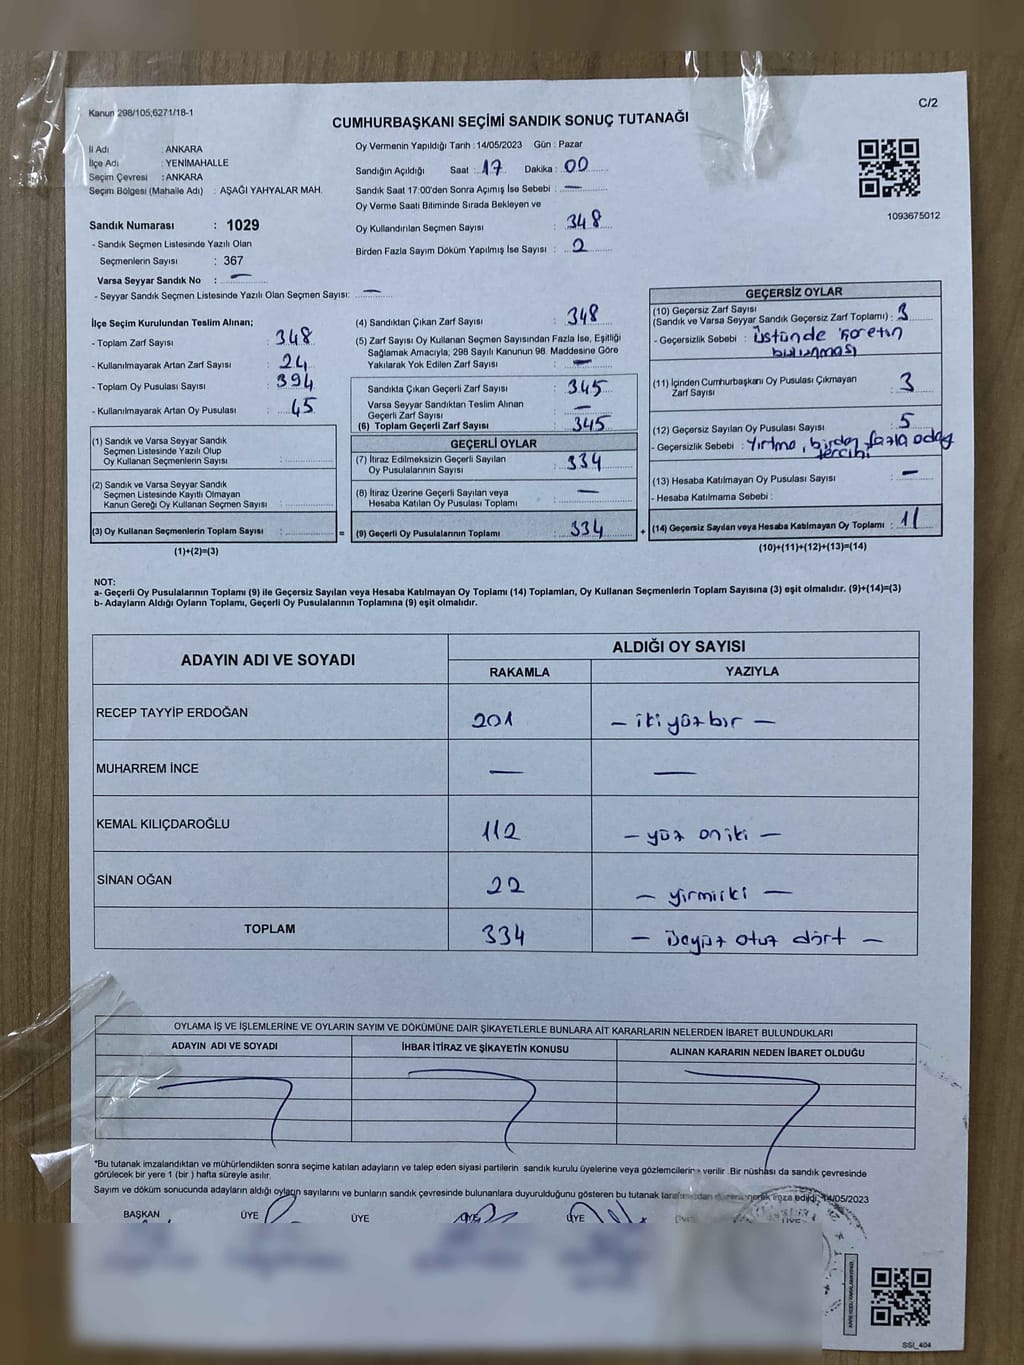 Kanun 298/105;6271/18-1
C/2
CUMHURBAŞKANI SEÇİMİ SANDIK SONUÇ TUTANAĞI
İl Adı : ANKARA
İlçe Adı : YENİMAHALLE
Seçim Çevresi : ANKARA
Seçim Bölgesi (Mahalle Adı) : AŞAĞI YAHYALAR MAH.
Sandık Numarası : 1029
- Sandık Seçmen Listesinde Yazılı Olan
Seçmenlerin Sayısı : 367
Varsa Seyyar Sandık No : —
- Seyyar Sandık Seçmen Listesinde Yazılı Olan Seçmen Sayısı: —
Oy Vermenin Yapıldığı Tarih : 14/05/2023 Gün : Pazar
Sandığın Açıldığı Saat : 17 Dakika : 00
Sandık Saat 17:00'den Sonra Açımış İse Sebebi : —
Oy Verme Saati Bitiminde Sırada Bekleyen ve
Oy Kullandırılan Seçmen Sayısı : 348
Birden Fazla Sayım Döküm Yapılmış İse Sayısı : 2
1093675012
İlçe Seçim Kurulundan Teslim Alınan;
- Toplam Zarf Sayısı : 348
- Kullanılmayarak Artan Zarf Sayısı : 24
- Toplam Oy Pusulası Sayısı : 394
- Kullanılmayarak Artan Oy Pusulası : 45
(1) Sandık ve Varsa Seyyar Sandık
Seçmen Listesinde Yazılı Olup
Oy Kullanan Seçmenlerin Sayısı :
(2) Sandık ve Varsa Seyyar Sandık
Seçmen Listesinde Kayıtlı Olmayan
Kanun Gereği Oy Kullanan Seçmen Sayısı :
(3) Oy Kullanan Seçmenlerin Toplam Sayısı : =
(1)+(2)=(3)
(4) Sandıktan Çıkan Zarf Sayısı : 348
(5) Zarf Sayısı Oy Kullanan Seçmen Sayısından Fazla İse, Eşitliği
Sağlamak Amacıyla; 298 Sayılı Kanunun 98. Maddesine Göre
Yakılarak Yok Edilen Zarf Sayısı : —
Sandıkta Çıkan Geçerli Zarf Sayısı : 345
Varsa Seyyar Sandıktan Teslim Alınan
Geçerli Zarf Sayısı : —
(6) Toplam Geçerli Zarf Sayısı : 345
GEÇERLİ OYLAR
(7) İtiraz Edilmeksizin Geçerli Sayılan
Oy Pusulalarının Sayısı : 334
(8) İtiraz Üzerine Geçerli Sayılan veya
Hesaba Katılan Oy Pusulası Toplamı : —
(9) Geçerli Oy Pusulalarının Toplamı : 334 +
GEÇERSİZ OYLAR
(10) Geçersiz Zarf Sayısı
(Sandık ve Varsa Seyyar Sandık Geçersiz Zarf Toplamı) : 3
- Geçersizlik Sebebi : üstünde işaretin
bulunması
(11) İçinden Cumhurbaşkanı Oy Pusulası Çıkmayan
Zarf Sayısı : 3
(12) Geçersiz Sayılan Oy Pusulası Sayısı : 5
- Geçersizlik Sebebi : Yırtma, birden fazla aday
tercihi
(13) Hesaba Katılmayan Oy Pusulası Sayısı : —
- Hesaba Katılmama Sebebi :
(14) Geçersiz Sayılan veya Hesaba Katılmayan Oy Toplamı : 11
(10)+(11)+(12)+(13)=(14)
NOT:
a- Geçerli Oy Pusulalarının Toplamı (9) ile Geçersiz Sayılan veya Hesaba Katılmayan Oy Toplamı (14) Toplamları, Oy Kullanan Seçmenlerin Toplam Sayısına (3) eşit olmalıdır. (9)+(14)=(3)
b- Adayların Aldığı Oyların Toplamı, Geçerli Oy Pusulalarının Toplamına (9) eşit olmalıdır.
ADAYIN ADI VE SOYADI ALDIĞI OY SAYISI
RAKAMLA YAZIYLA
RECEP TAYYİP ERDOĞAN 201 — iki yüz bir —
MUHARREM İNCE — —
KEMAL KILIÇDAROĞLU 112 — yüz oniki —
SİNAN OĞAN 22 — yirmiiki —
TOPLAM 334 — üçyüz otuz dört —
OYLAMA İŞ VE İŞLEMLERİNE VE OYLARIN SAYIM VE DÖKÜMÜNE DAİR ŞİKAYETLERLE BUNLARA AİT KARARLARIN NELERDEN İBARET BULUNDUKLARI
ADAYIN ADI VE SOYADI İHBAR İTİRAZ VE ŞİKAYETİN KONUSU ALINAN KARARIN NEDEN İBARET OLDUĞU
*Bu tutanak imzalandıktan ve mühürlendikten sonra seçime katılan adayların ve talep eden siyasi partilerin sandık kurulu üyelerine veya gözlemcilerine verilir. Bir nüshası da sandık çevresinde
görülecek bir yere 1 (bir) hafta süreyle asılır.
Sayım ve döküm sonucunda adayların aldığı oyların sayılarını ve bunların sandık çevresinde bulunanlara duyurulduğunu gösteren bu tutanak imza edildi. 14/05/2023
BAŞKAN ÜYE ÜYE ÜYE ÜYE ÜYE
SSI_404